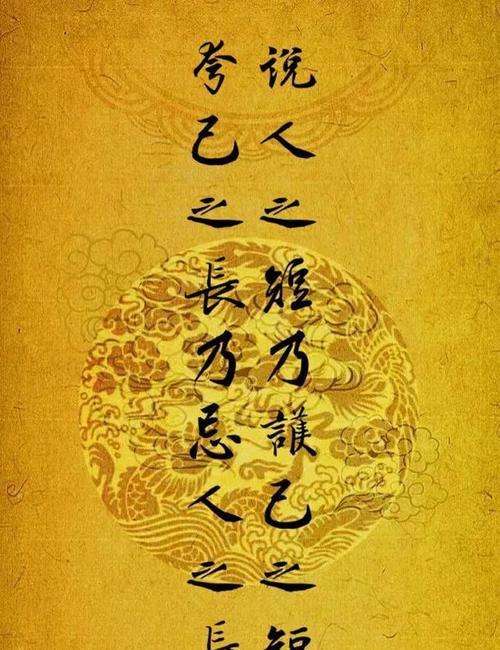 说人之短乃護己之短
夸己之長乃忌人之長